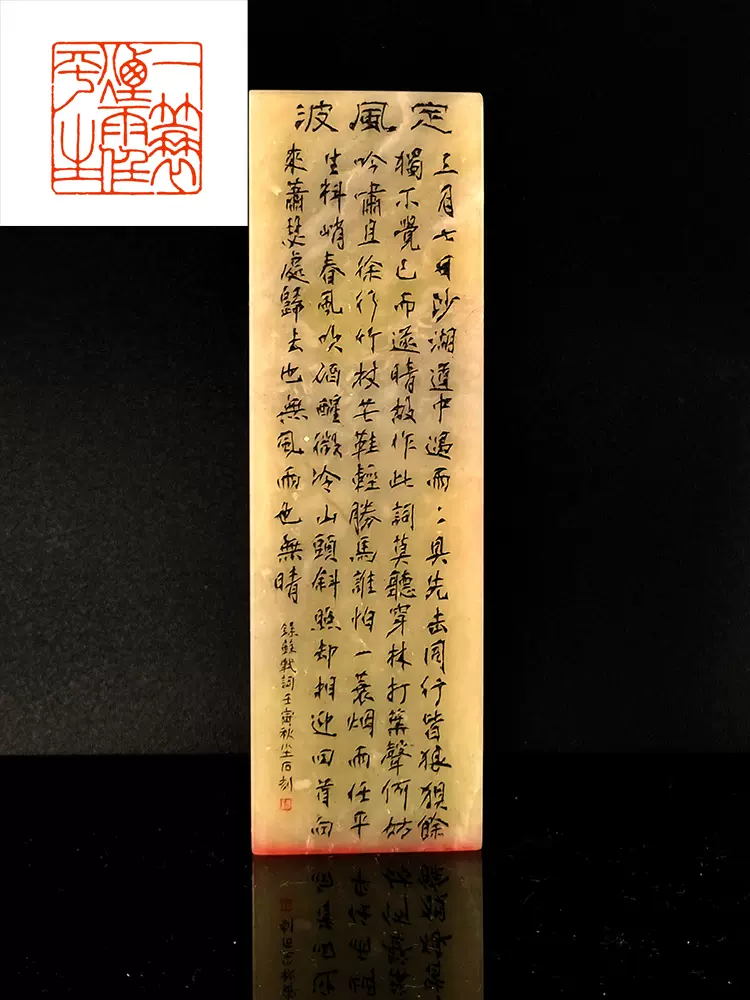 一蓑
煙雨任
平生
定風波
三月七日沙湖道中遇雨:具先去同行皆狼狽餘
獨不覺已而遂晴故作此詞莫聽穿林打葉聲何妨
吟嘯且徐行竹杖芒鞋輕勝馬誰怕一蓑烟雨任平
生料峭春風吹酒醒微冷山頭斜照却相迎回首向
來蕭瑟處歸去也無風雨也無晴
錄蘇軾詞壬寅秋小土石刻